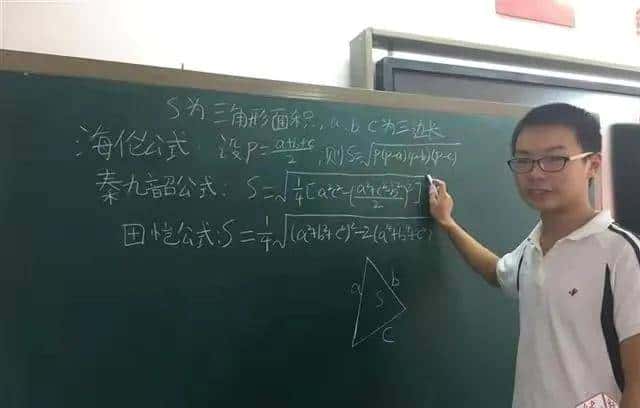 S为三角形面积,a、b、c为三边长
海伦公式:设P=(a+b+c)/2,则S=√(P(P-a)(P-b)(P-c))
秦九韶公式:S=√(1/4[a²c²-((a²+c²-b²)/2)²])
田恺公式:S=1/4√((a²+b²+c²)²-2(a⁴+b⁴+c⁴))
a
b
S
c